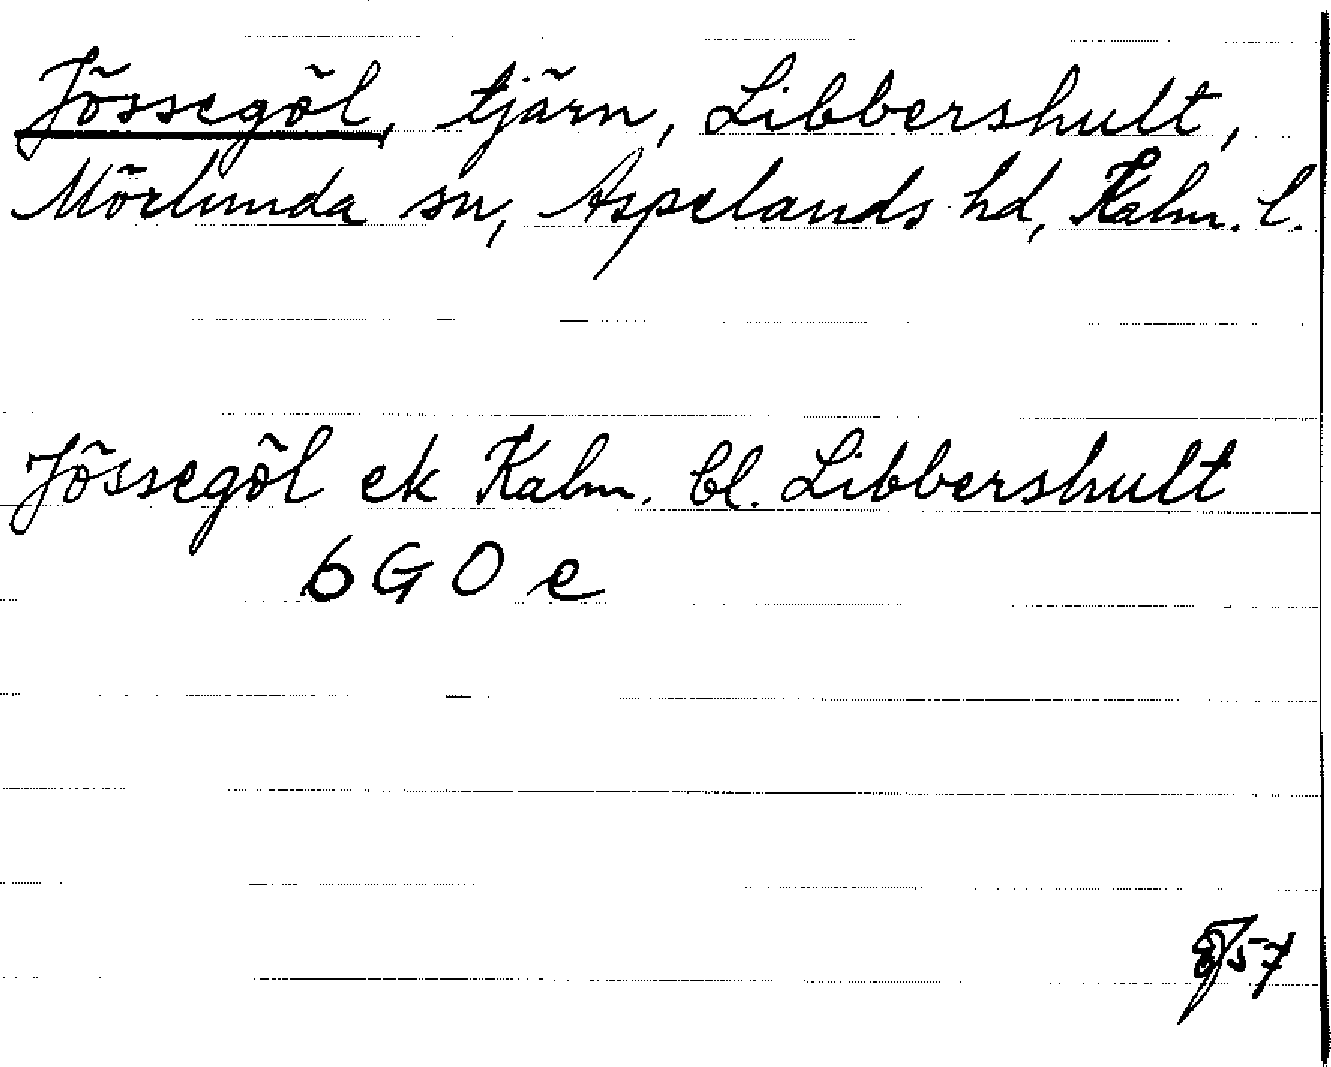 Jössegöl, tjärn, Libbershult,
Mörlunda sn, Aspelands hd, Kalm. l.
Jössegöl ek Kalm. bl. Libbershult
6 G 0 e
57